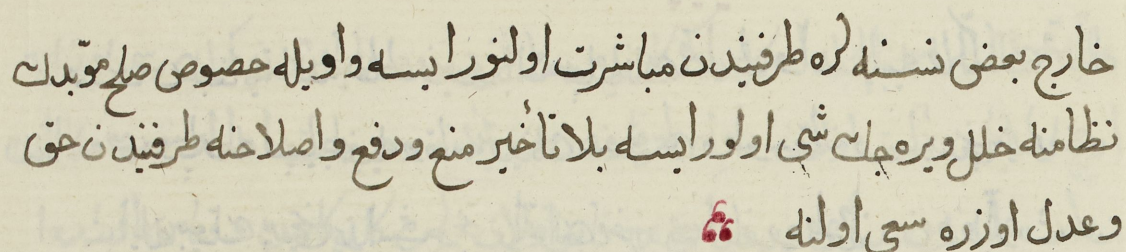 خارج بعض نسنه لره طرفيندن مباشرت اولنور ايسه واويله خصوص صلح مؤبدك
نظامنه خلل ويره جك شى اولورايسه بلا تأخير منع ودفع واصلاحنه طرفيندن حق
وعدل اوزره سعى اولنه